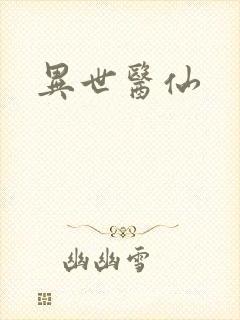 異世醫仙
幽幽雪